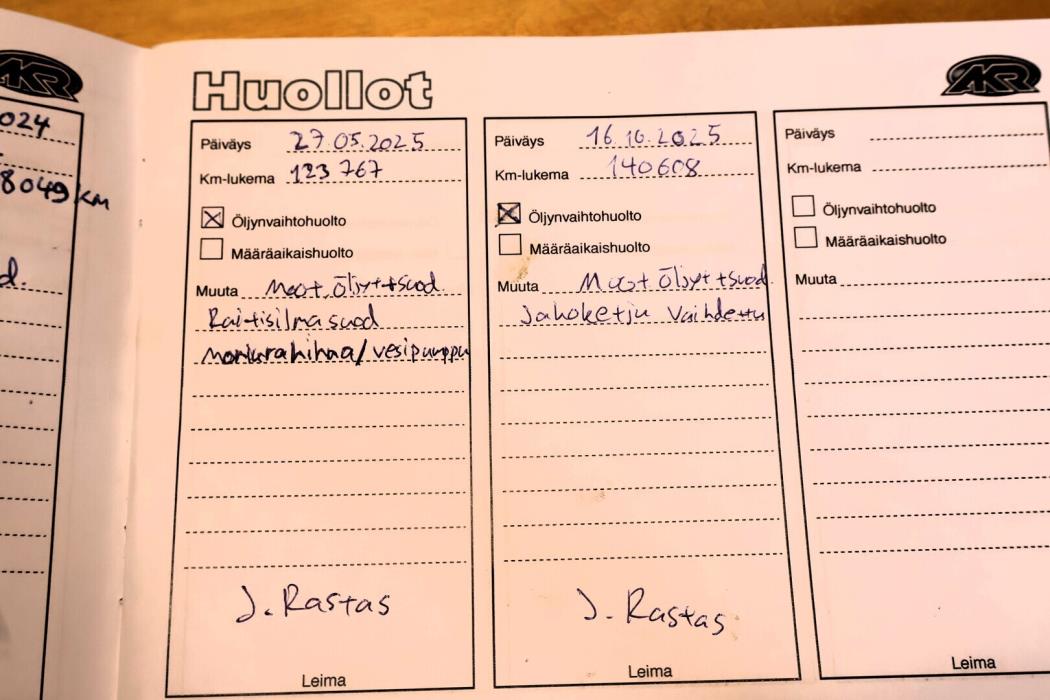 AKR
024
8049 km
d.
Huollot
AKR
Päiväys 27.05.2025
Km-lukema 123 767
Öljynvaihtohuolto
Määräaikaishuolto
Muuta Moot. Öljyt+suod.
Raitisilmasuod
moniurahihna/vesipumppu
J. Rastas
Leima
Päiväys 16.10.2025
Km-lukema 140608
Öljynvaihtohuolto
Määräaikaishuolto
Muuta Moot Öljyt+suod.
Jakoketju vaihdettu
J. Rastas
Leima
Päiväys
Km-lukema
Öljynvaihtohuolto
Määräaikaishuolto
Muuta
Leima